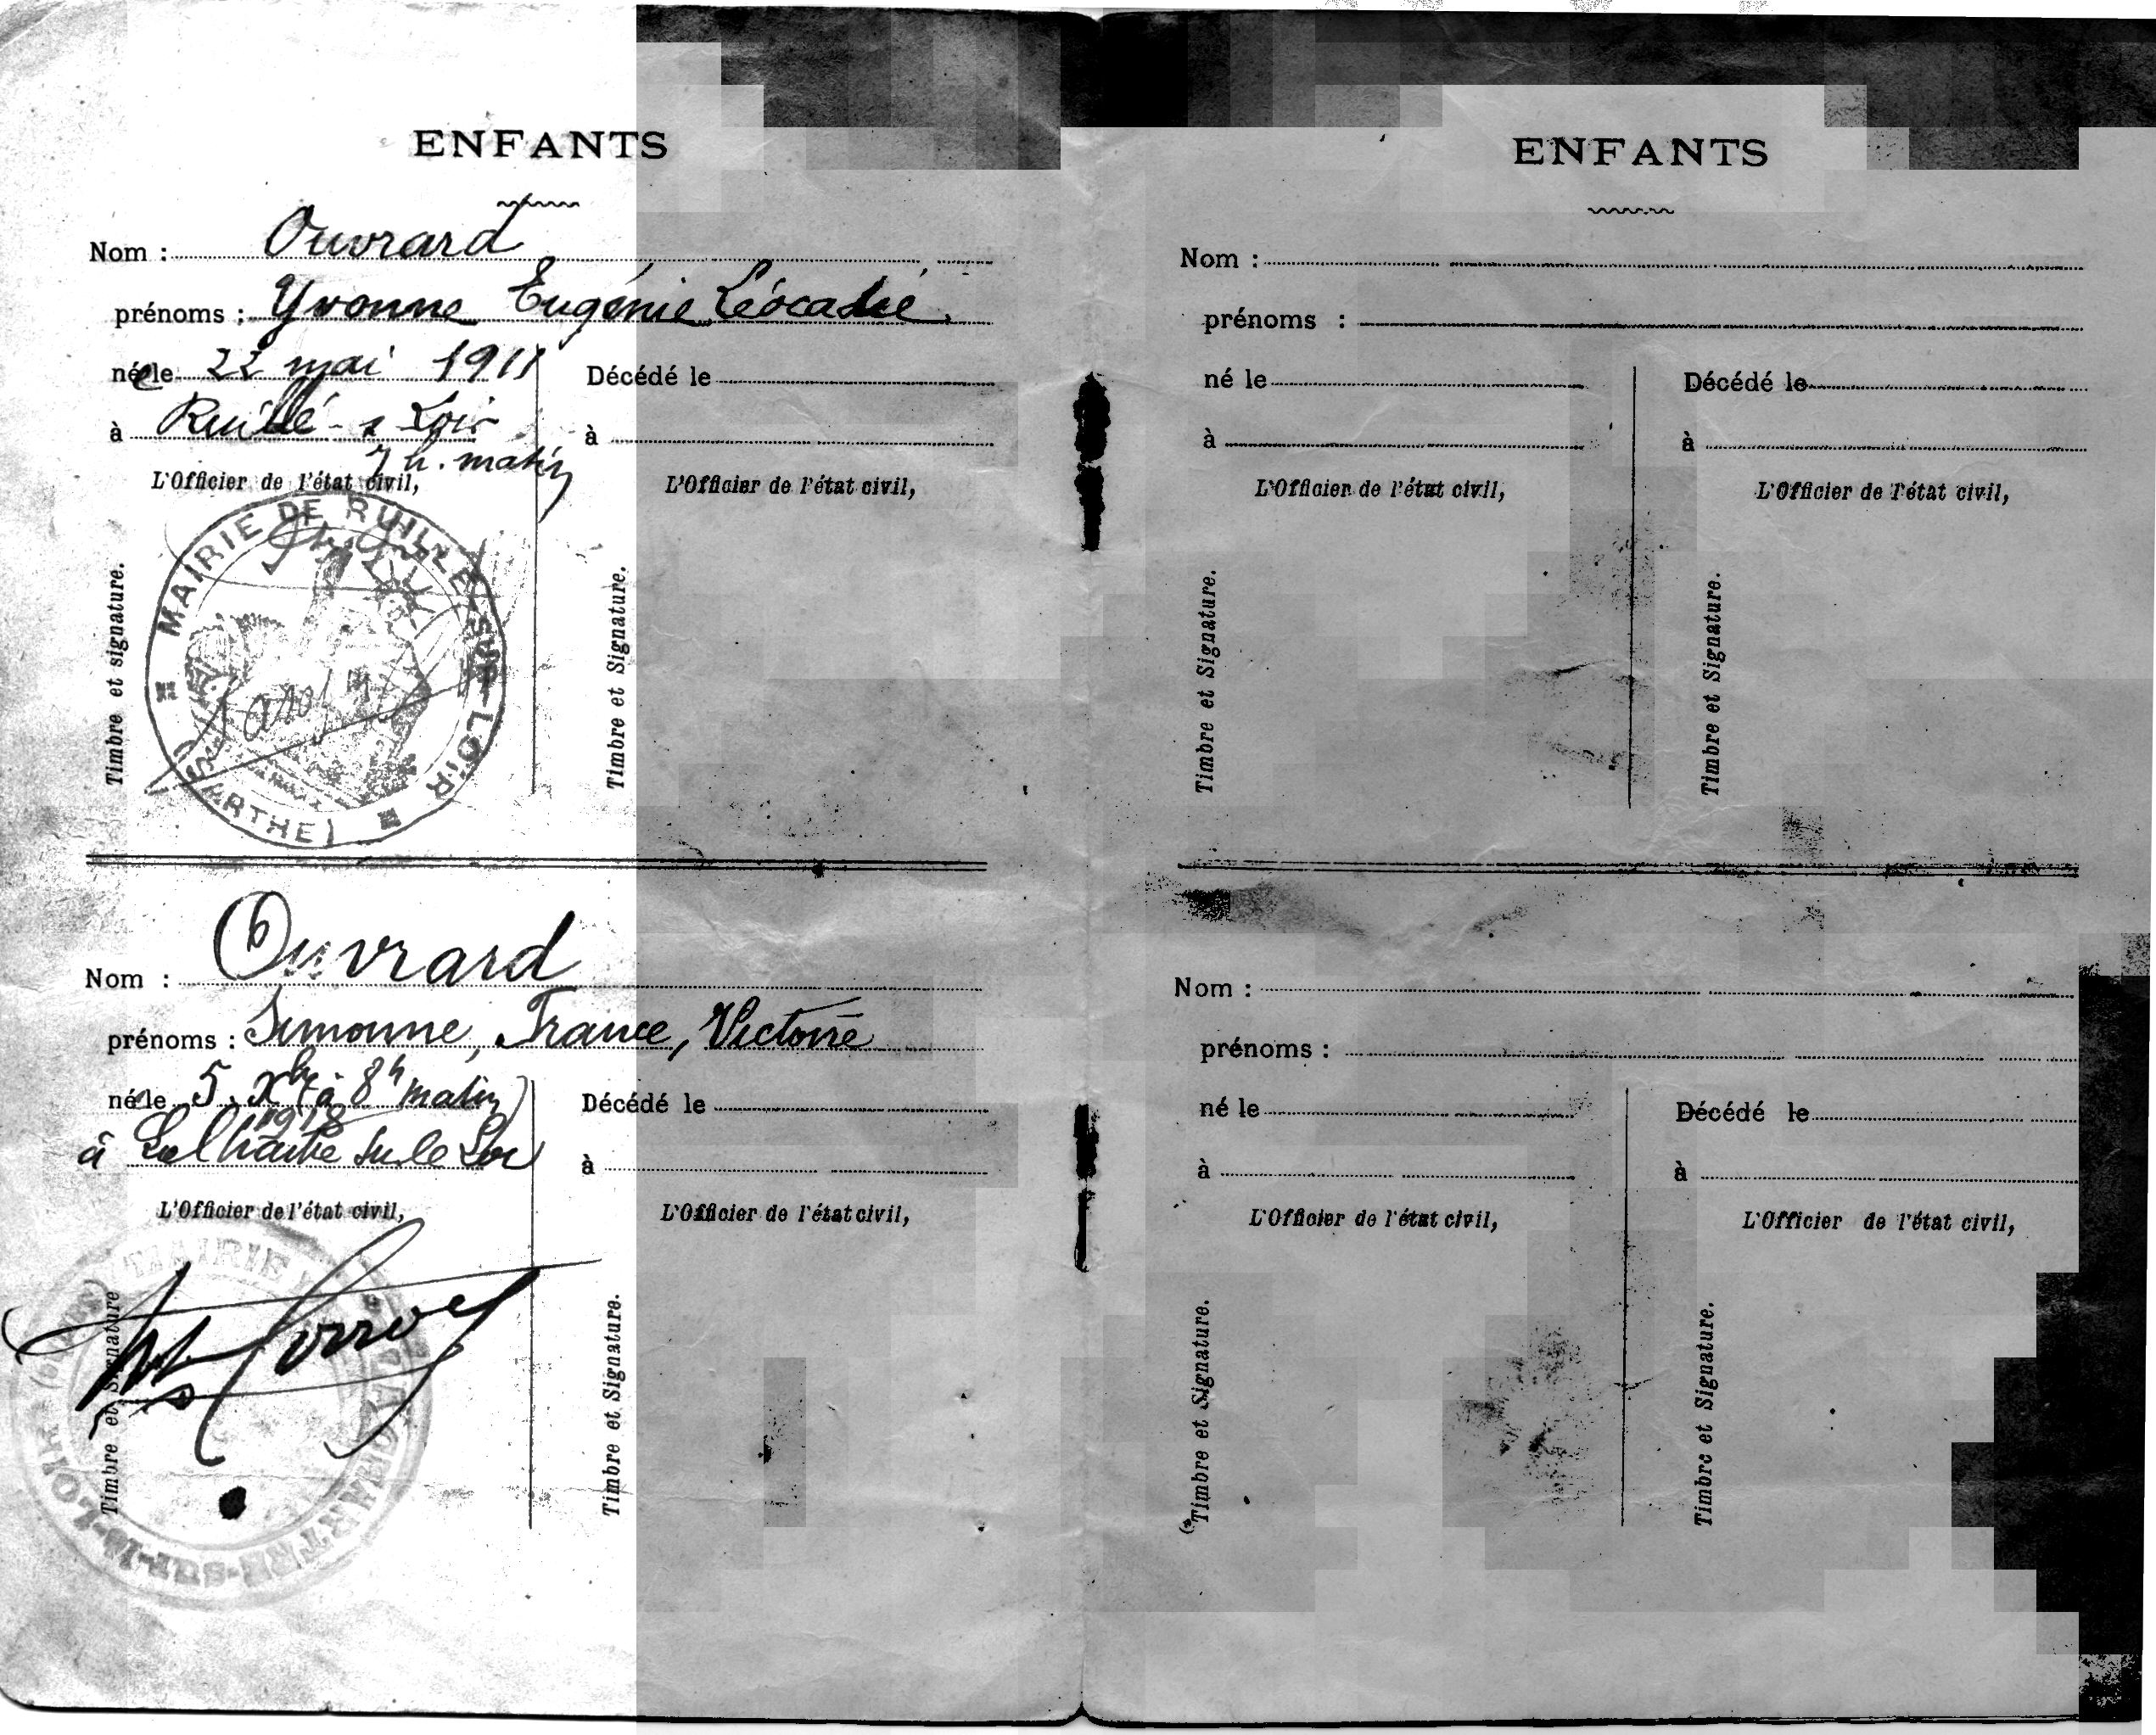 ENFANTS
Nom : Ouvrard
prénoms : Yvonne Eugénie Léocadie.
née le 22 mai 1911
à Ruillé-s Loir
7 h. matin
L'Officier de l'état civil,
Timbre et signature.
MAIRIE DE RUILLÉ-SUR-LOIR
(SARTHE)
Décédé le
à
L'Officier de l'état civil,
Timbre et Signature.
Nom : Ouvrard
prénoms : Simonne, France, Victoire
née le 5 Xbre à 8h matin
1918
à La Chartre sur le Loir
L'Officier de l'état civil,
Timbre et Signature
MAIRIE LA CHARTRE-SUR-LE-LOIR
Décédé le
à
L'Officier de l'état civil,
Timbre et Signature.
ENFANTS
Nom :
prénoms :
né le
à
L'Officier de l'état civil,
Timbre et Signature.
Décédé le
à
L'Officier de l'état civil,
Timbre et Signature.
Nom :
prénoms :
né le
à
L'Officier de l'état civil,
Timbre et Signature.
Décédé le
à
L'Officier de l'état civil,
Timbre et Signature.